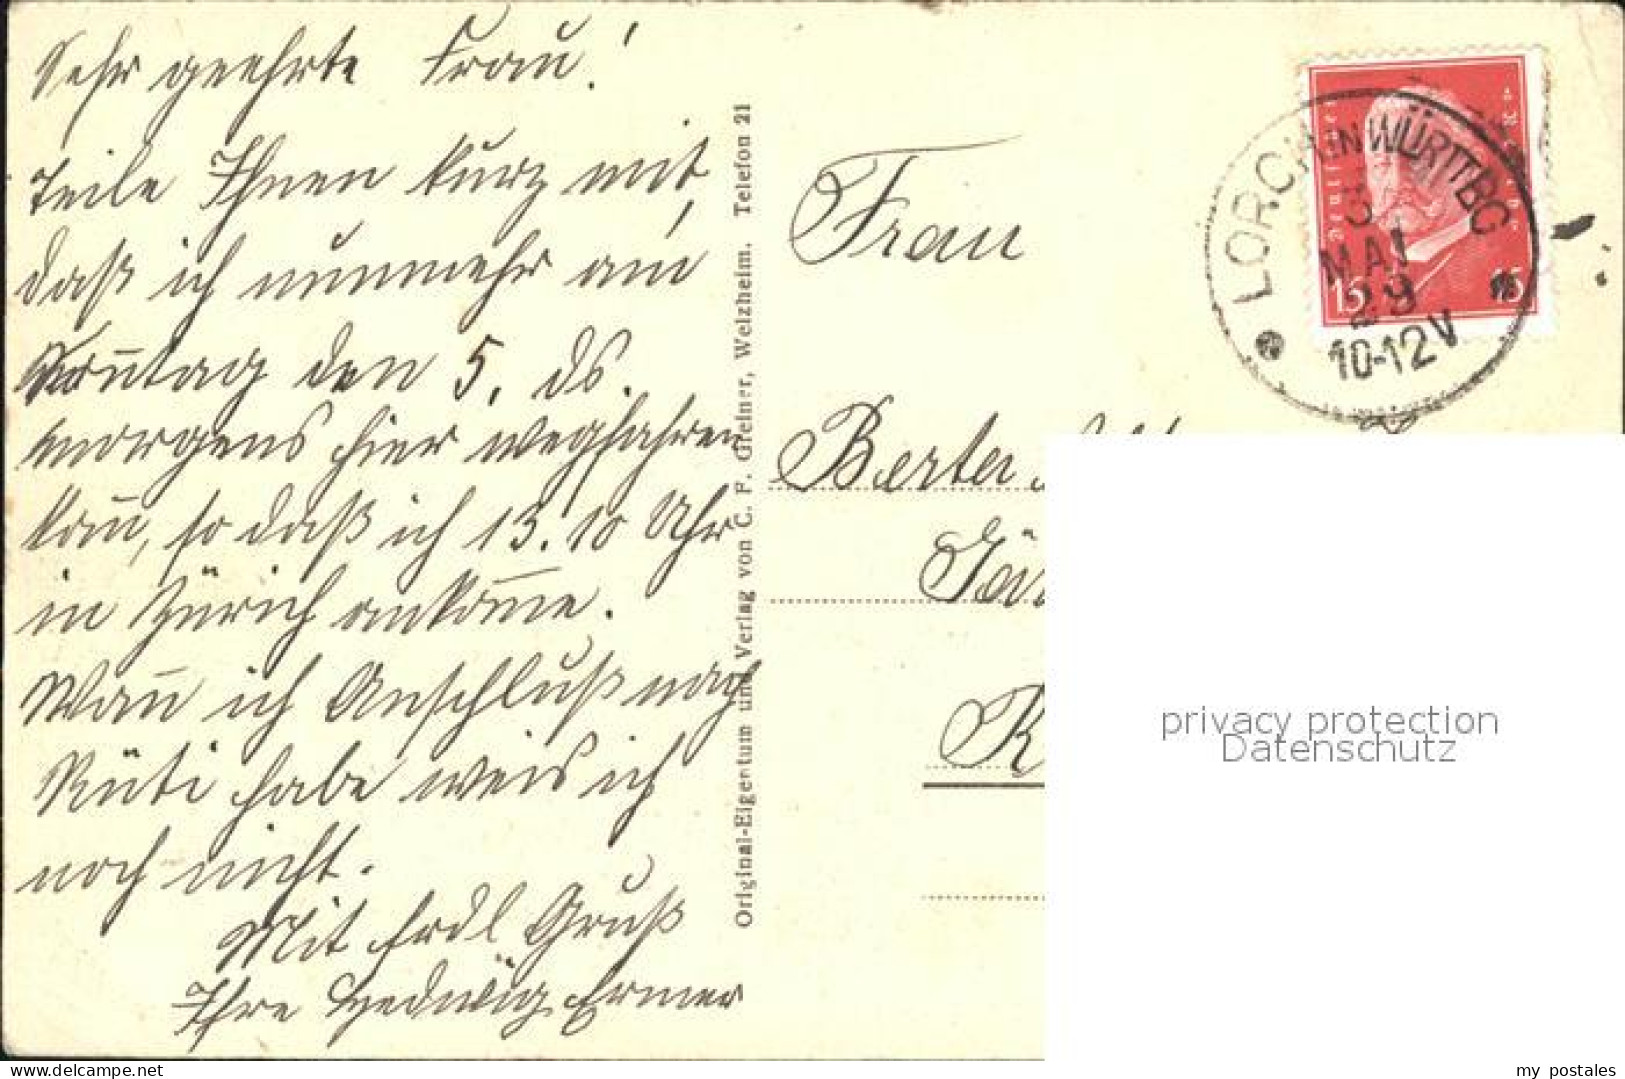 Sehr geehrte Frau!
Teile Ihnen kurz mit,
daß ich nunmehr am
Soñtag den 5. ds.
morgens hier wegfahren
kañ, so daß ich 13.10 Uhr
in Zürich ankom̄e.
Wañ ich Anschluß nach
Rüti habe weis ich
noch nicht.
Mit frdl Gruß
Ihre Hedwig Ermer
Original-Eigentum und Verlag von C. F. Greiner, Welzheim. Telefon 21
LORCH IN WÜRTTBG
3
MAI
29
10-12 V
Deutsches Reich
15 15
Frau
Berta
privacy protection
Datenschutz
my postales
www.delcampe.net